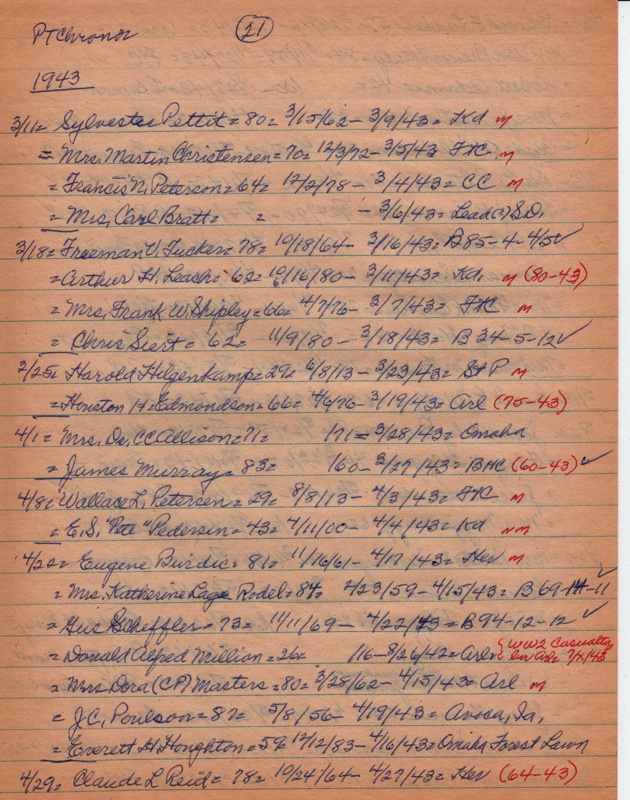 PTChronos (21)
1943
3/11= Sylvester Pettit = 80= 3/15/62 - 3/9/43= Kd m
= Mrs. Martin Christensen = 70= 12/3/72 - 3/5/43 FHC m
= Francis N. Peterson = 64= 12/2/78 - 3/4/43= CC m
= Mrs. Carl Bratt= = - 3/6/43= Lead(?) S.D.
3/18= Freeman V Tucker= 78= 10/18/64 - 3/16/43= B 85-4-4/5 ✓
= Arthur H. Leach= 62= 10/16/80 - 3/11/43= Kd. m (80-43)
= Mrs. Frank W. Shipley = 66= 4/7/76 - 3/7/43= FHC m
= Chris Siert = 62= 11/9/80 - 3/18/43= B 34-5-12 ✓
3/25= Harold Hilgenkamp= 29= 6/8/13 - 3/23/43= St P m
= Houston H. Edmondson= 66= 4/6/76 - 3/19/43= Arl (75-43)
4/1= Mrs. Dr. CC Allison= 71= 171= 3/28/43= Omaha
= James Murray= 83= 160 - 3/27/43= BHC (60-43) ✓
4/8= Wallace L. Petersen = 29= 8/8/13 - 4/3/43= FHC m
= E.S. "Pete" Pedersen = 43= 7/11/00 - 4/4/43= Kd nm
4/22= Eugene Burdic= 81= 11/16/61 - 4/17/43= Her m
= Mrs. Katherine Lage Rodel= 84= 2/23/59 - 4/15/43= B 69-14-11 ✓
= Gus Scheffler= 73= 11/11/69 - 4/22/43= B 94-12-12 ✓
= Donald Alfred Million= 26= /16 - 8/26/42= Arl= {WW2 Casualty
7/8/43
= Mrs. Dora (CP) Masters = 80= 3/28/62 - 4/15/43= Arl m
= J.C. Poulson = 87= 5/8/56 - 4/19/43= Avoca, Ia.
= Everett H. Houghton = 59= 12/12/83 - 4/16/43= Omaha Forest Lawn
4/29= Claude L Reid= 78= 10/24/64 - 4/27/43= Her (64-43)